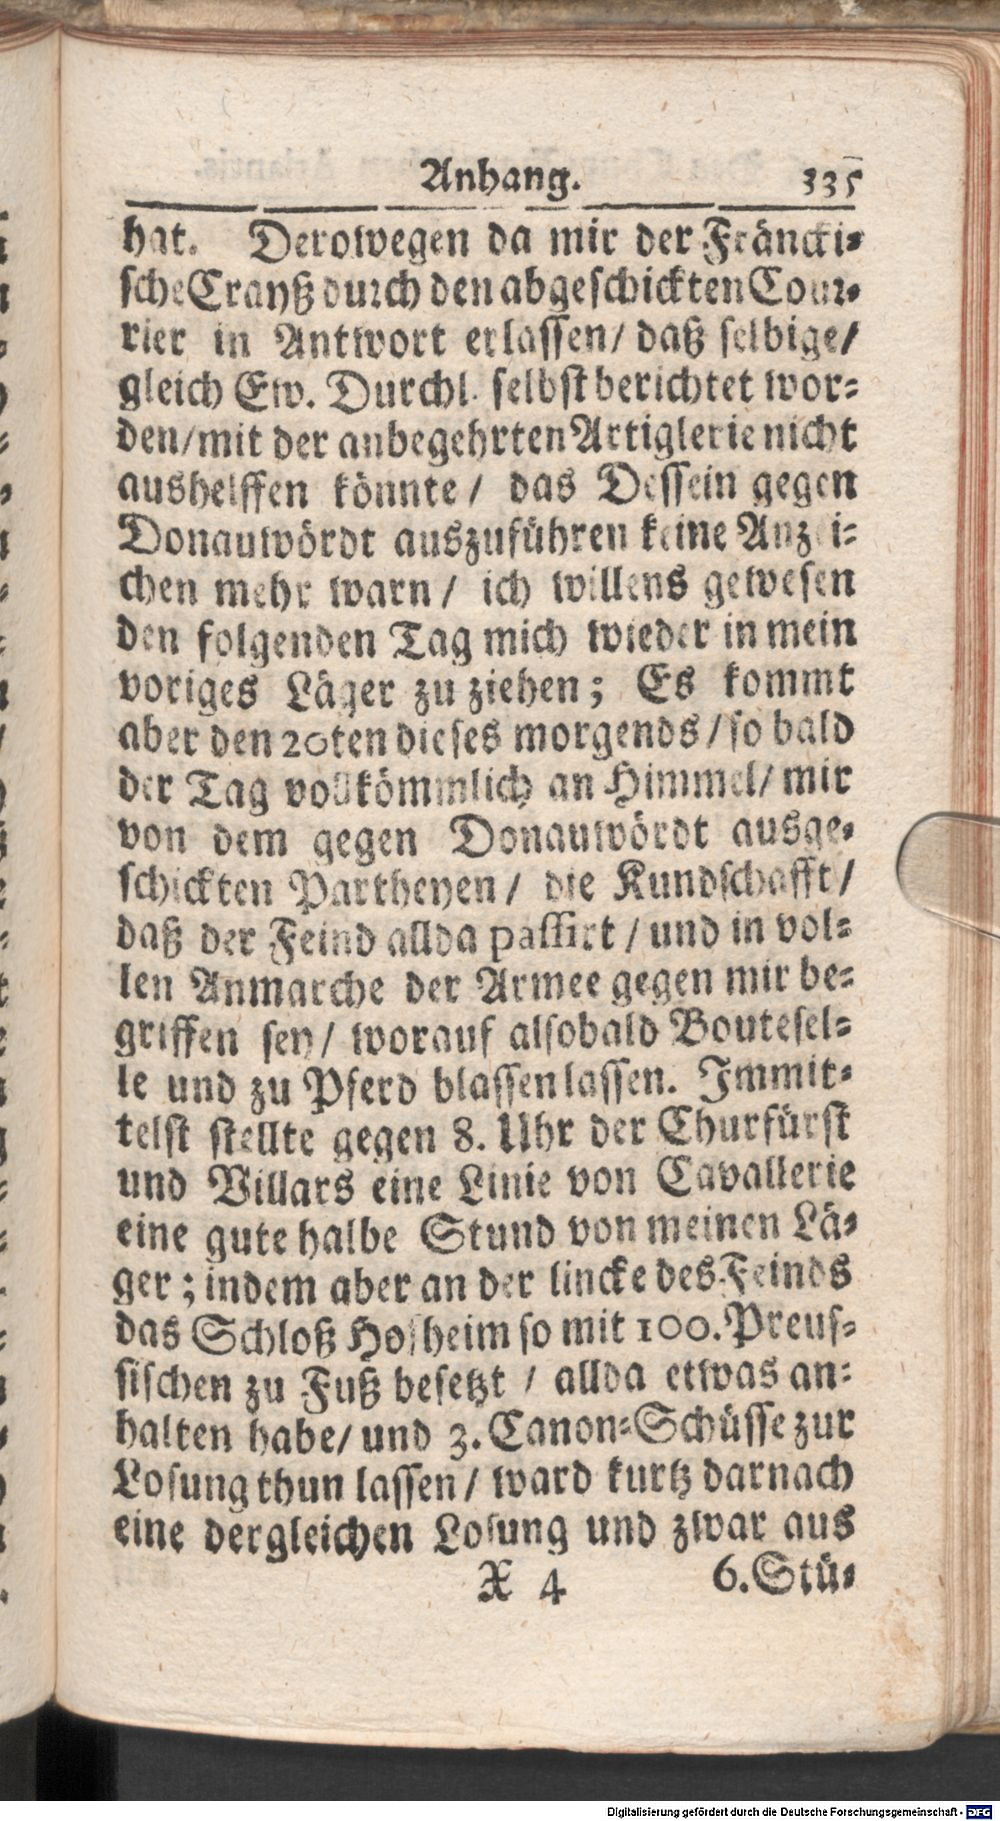 Anhang. 335
hat. Derowegen da mir der Fräncki-
sche Crayß durch den abgeschickten Cour-
rier in Antwort erlassen/ daß selbige/
gleich Ew. Durchl. selbst berichtet wor-
den/mit der anbegehrten Artiglerie nicht
aushelffen könnte/ das Dessein gegen
Donauwördt auszuführen keine Anzei-
chen mehr warn/ ich willens gewesen
den folgenden Tag mich wieder in mein
voriges Läger zu ziehen; Es kommt
aber den 20ten dieses morgends/so bald
der Tag vollkömmlich an Himmel/ mir
von dem gegen Donauwördt ausge-
schickten Partheyen/ die Kundschafft/
daß der Feind allda passirt/und in vol-
len Anmarche der Armee gegen mir be-
griffen sey/ worauf alsobald Boutesel-
le und zu Pferd blassen lassen. Immit-
telst stellte gegen 8. Uhr der Churfürst
und Villars eine Linie von Cavallerie
eine gute halbe Stund von meinen Lä-
ger; indem aber an der lincke des Feinds
das Schloß Hofheim so mit 100. Preus-
sischen zu Fuß besetzt / allda etwas an-
halten habe/ und 3. Canon-Schüsse zur
Losung thun lassen/ ward kurtz darnach
eine dergleichen Losung und zwar aus
X 4 6. Stü-
Digitalisierung gefördert durch die Deutsche Forschungsgemeinschaft - DFG